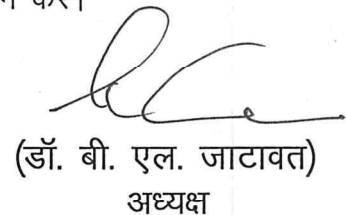 करें
(डॉ. बी. एल. जाटावत)
अध्यक्ष